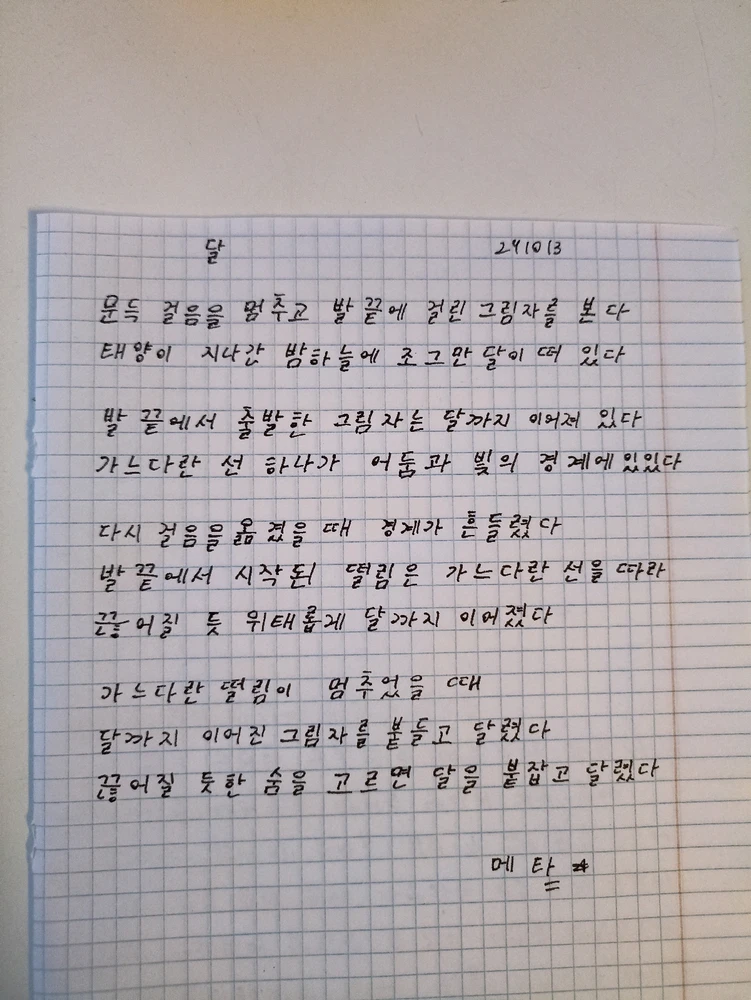 달 241013
문득 걸음을 멈추고 발 끝에 걸린 그림자를 본다
태양이 지나간 밤하늘에 조그만 달이 떠 있다
발 끝에서 출발한 그림자는 달까지 이어져 있다
가느다란 선 하나가 어둠과 빛의 경계에 있었다
다시 걸음을 옮겼을 때 경계가 흔들렸다
발 끝에서 시작된 떨림은 가느다란 선을 따라
끊어질 듯 위태롭게 달까지 이어졌다
가느다란 떨림이 멈추었을 때
달까지 이어진 그림자를 붙들고 달렸다
끊어질 듯한 숨을 고르면 달을 붙잡고 달렸다
메타